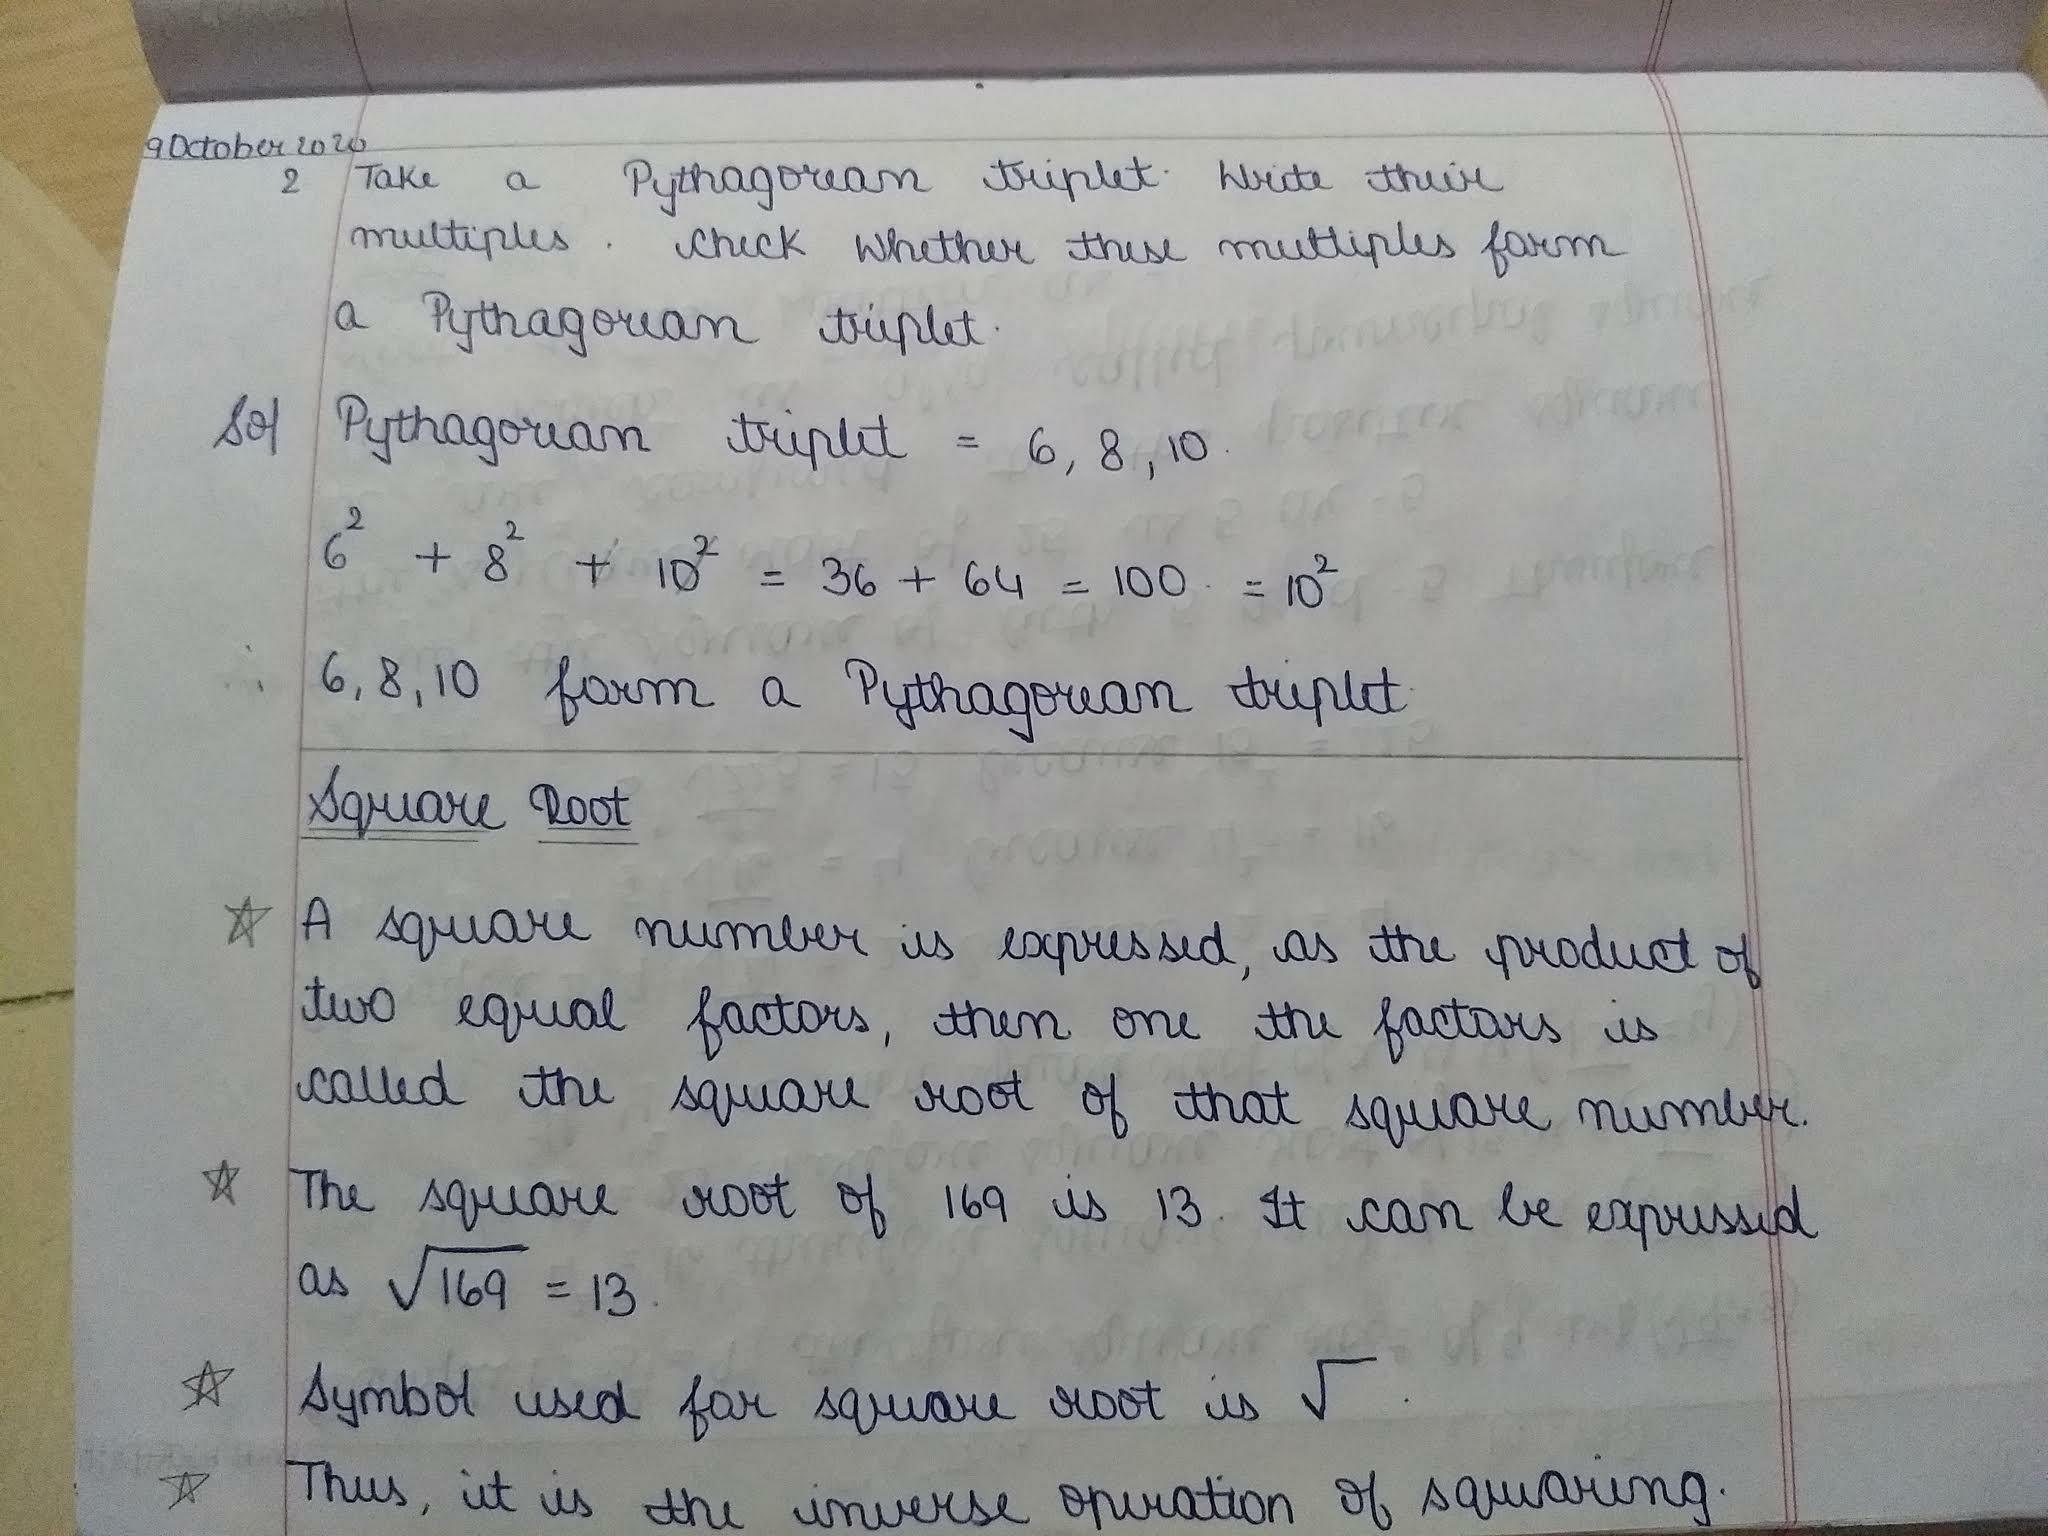 9 October 2020
2 Take a Pythagorean triplet. Write their
multiples. Check whether these multiples form
a Pythagorean triplet.
Sol Pythagorean triplet = 6, 8, 10.
6² + 8² + 10² = 36 + 64 = 100 = 10²
∴ 6, 8, 10 form a Pythagorean triplet.
Square Root
☆ A square number is expressed, as the product of
two equal factors, then one the factors is
called the square root of that square number.
☆ The square root of 169 is 13. It can be expressed
as √169 = 13.
☆ Symbol used for square root is √.
☆ Thus, it is the inverse operation of squaring.